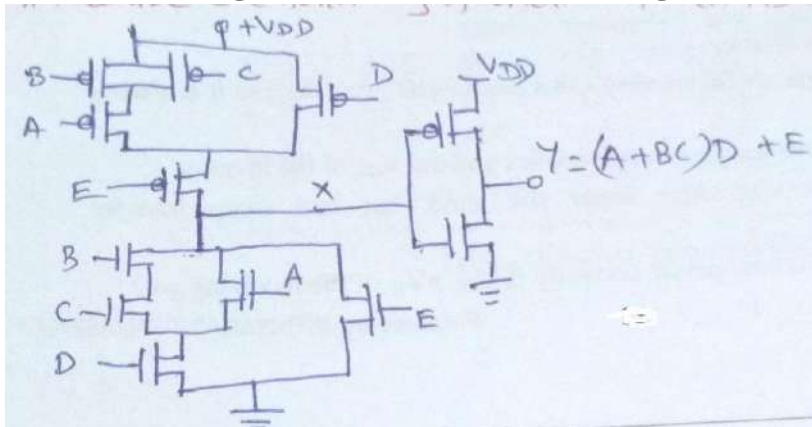 +VDD
B
C
D
VDD
A
Y=(A+BC)D+E
E
X
B
A
C
E
D